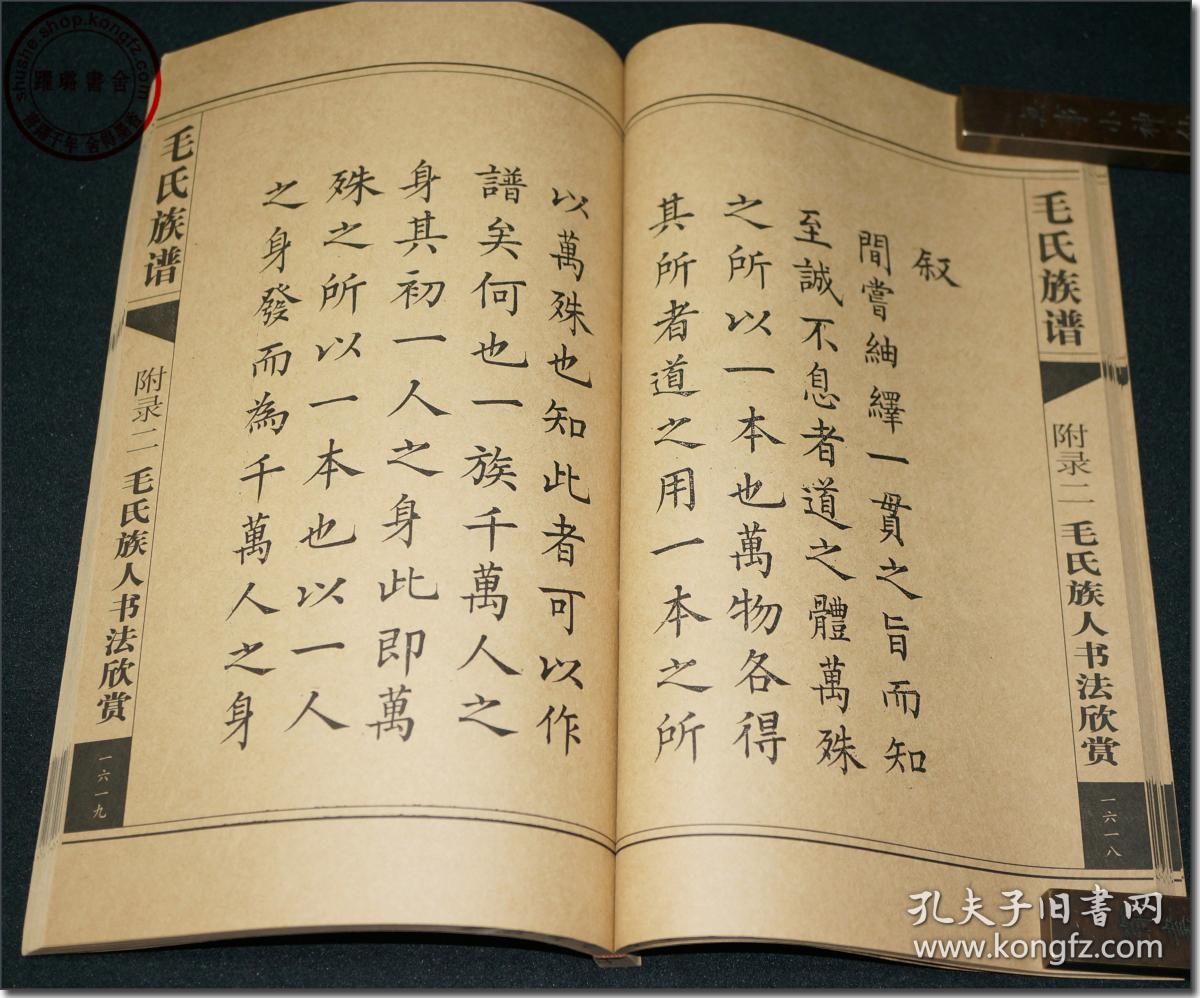 毛氏族谱
附录二 毛氏族人书法欣赏
一六一八
叙
間嘗紬繹一貫之旨而知
至誠不息者道之體萬殊
之所以一本也萬物各得
其所者道之用一本之所
以萬殊也知此者可以作
譜矣何也一族千萬人之
身其初一人之身此即萬
殊之所以一本也以一人
之身發而為千萬人之身
毛氏族谱
附录二 毛氏族人书法欣赏
一六一九
shushe.shop.kongfz.com
孔夫子旧书网
www.kongfz.com